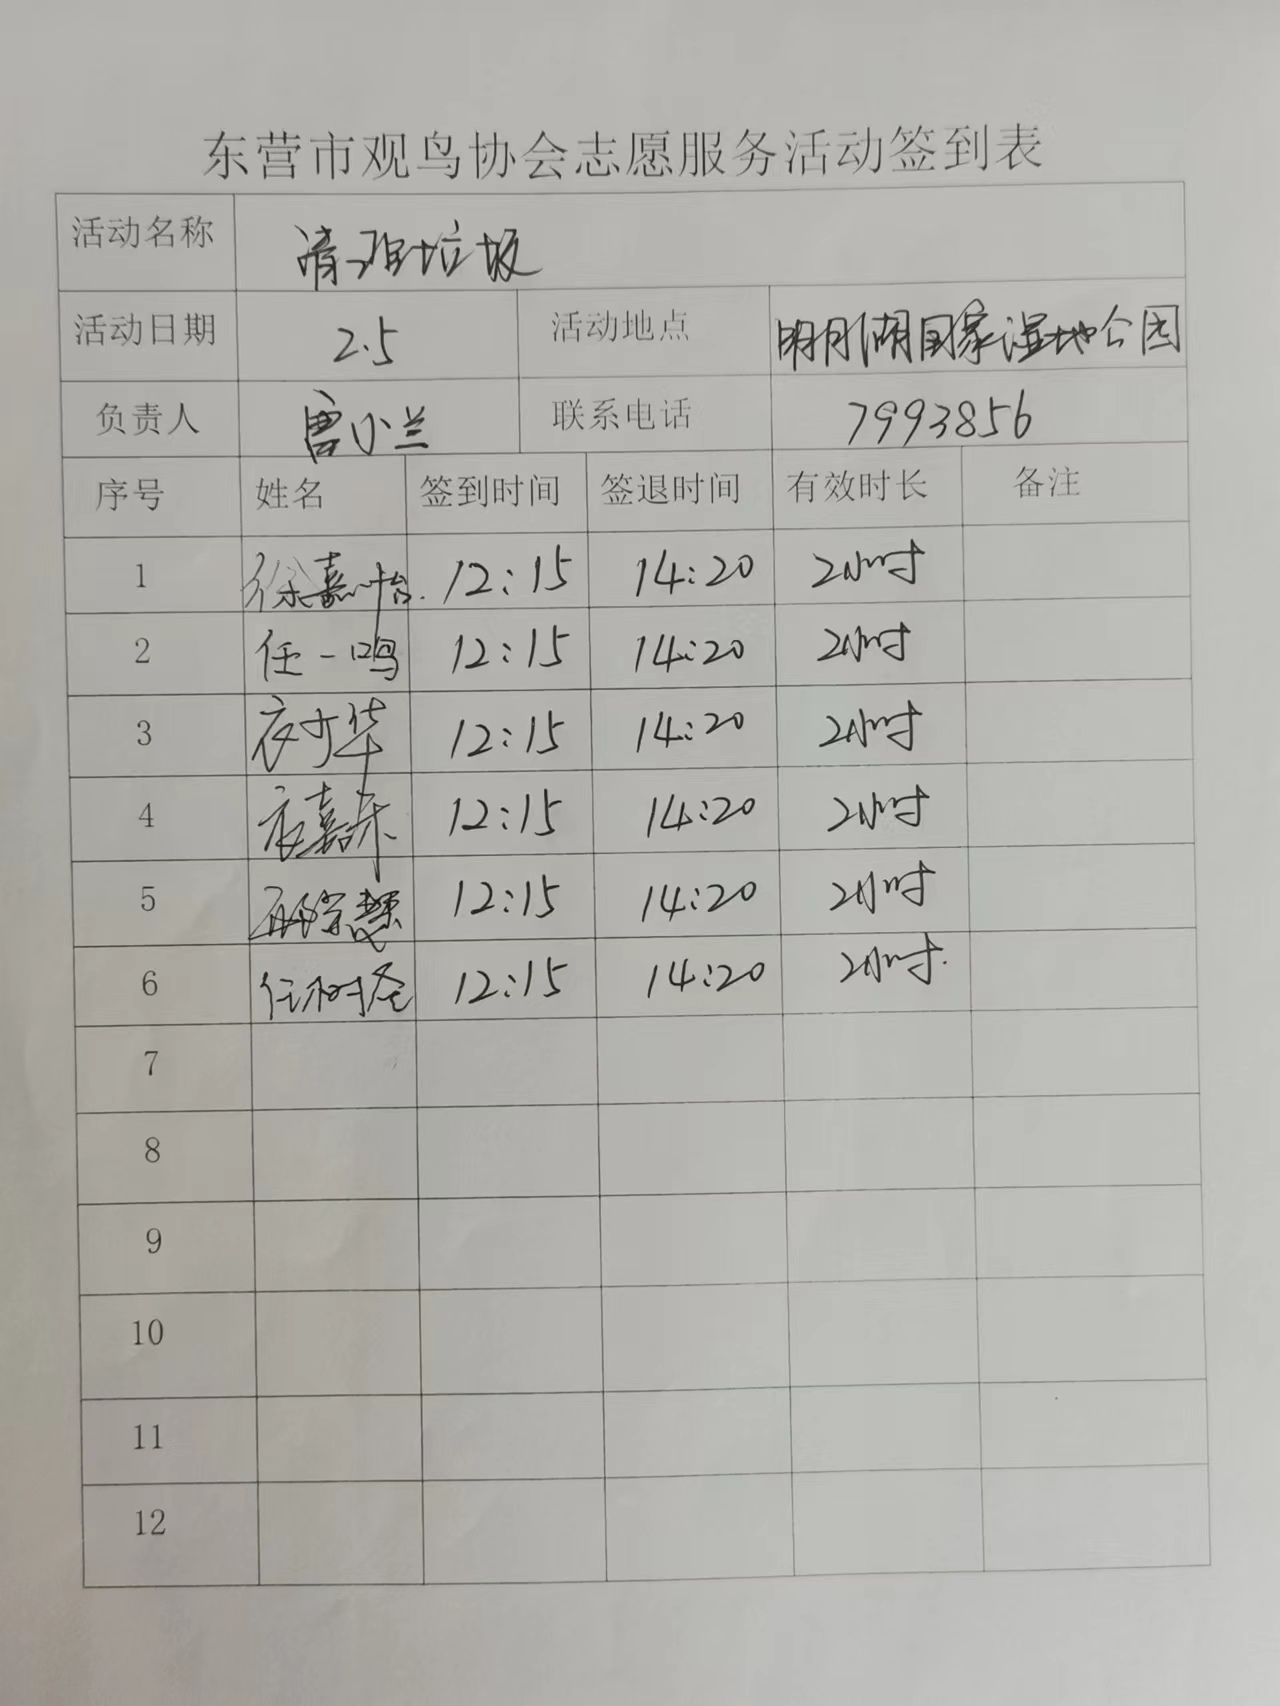 东营市观鸟协会志愿服务活动签到表
活动名称 清理垃圾
活动日期 2.5 活动地点 明月湖国家湿地公园
负责人 唐小兰 联系电话 7993856
序号 姓名 签到时间 签退时间 有效时长 备注
1 徐嘉怡 12:15 14:20 2小时
2 任一鸣 12:15 14:20 2小时
3 12:15 14:20 2小时
4 12:15 14:20 2小时
5 12:15 14:20 2小时
6 任树圣 12:15 14:20 2小时.
7
8
9
10
11
12